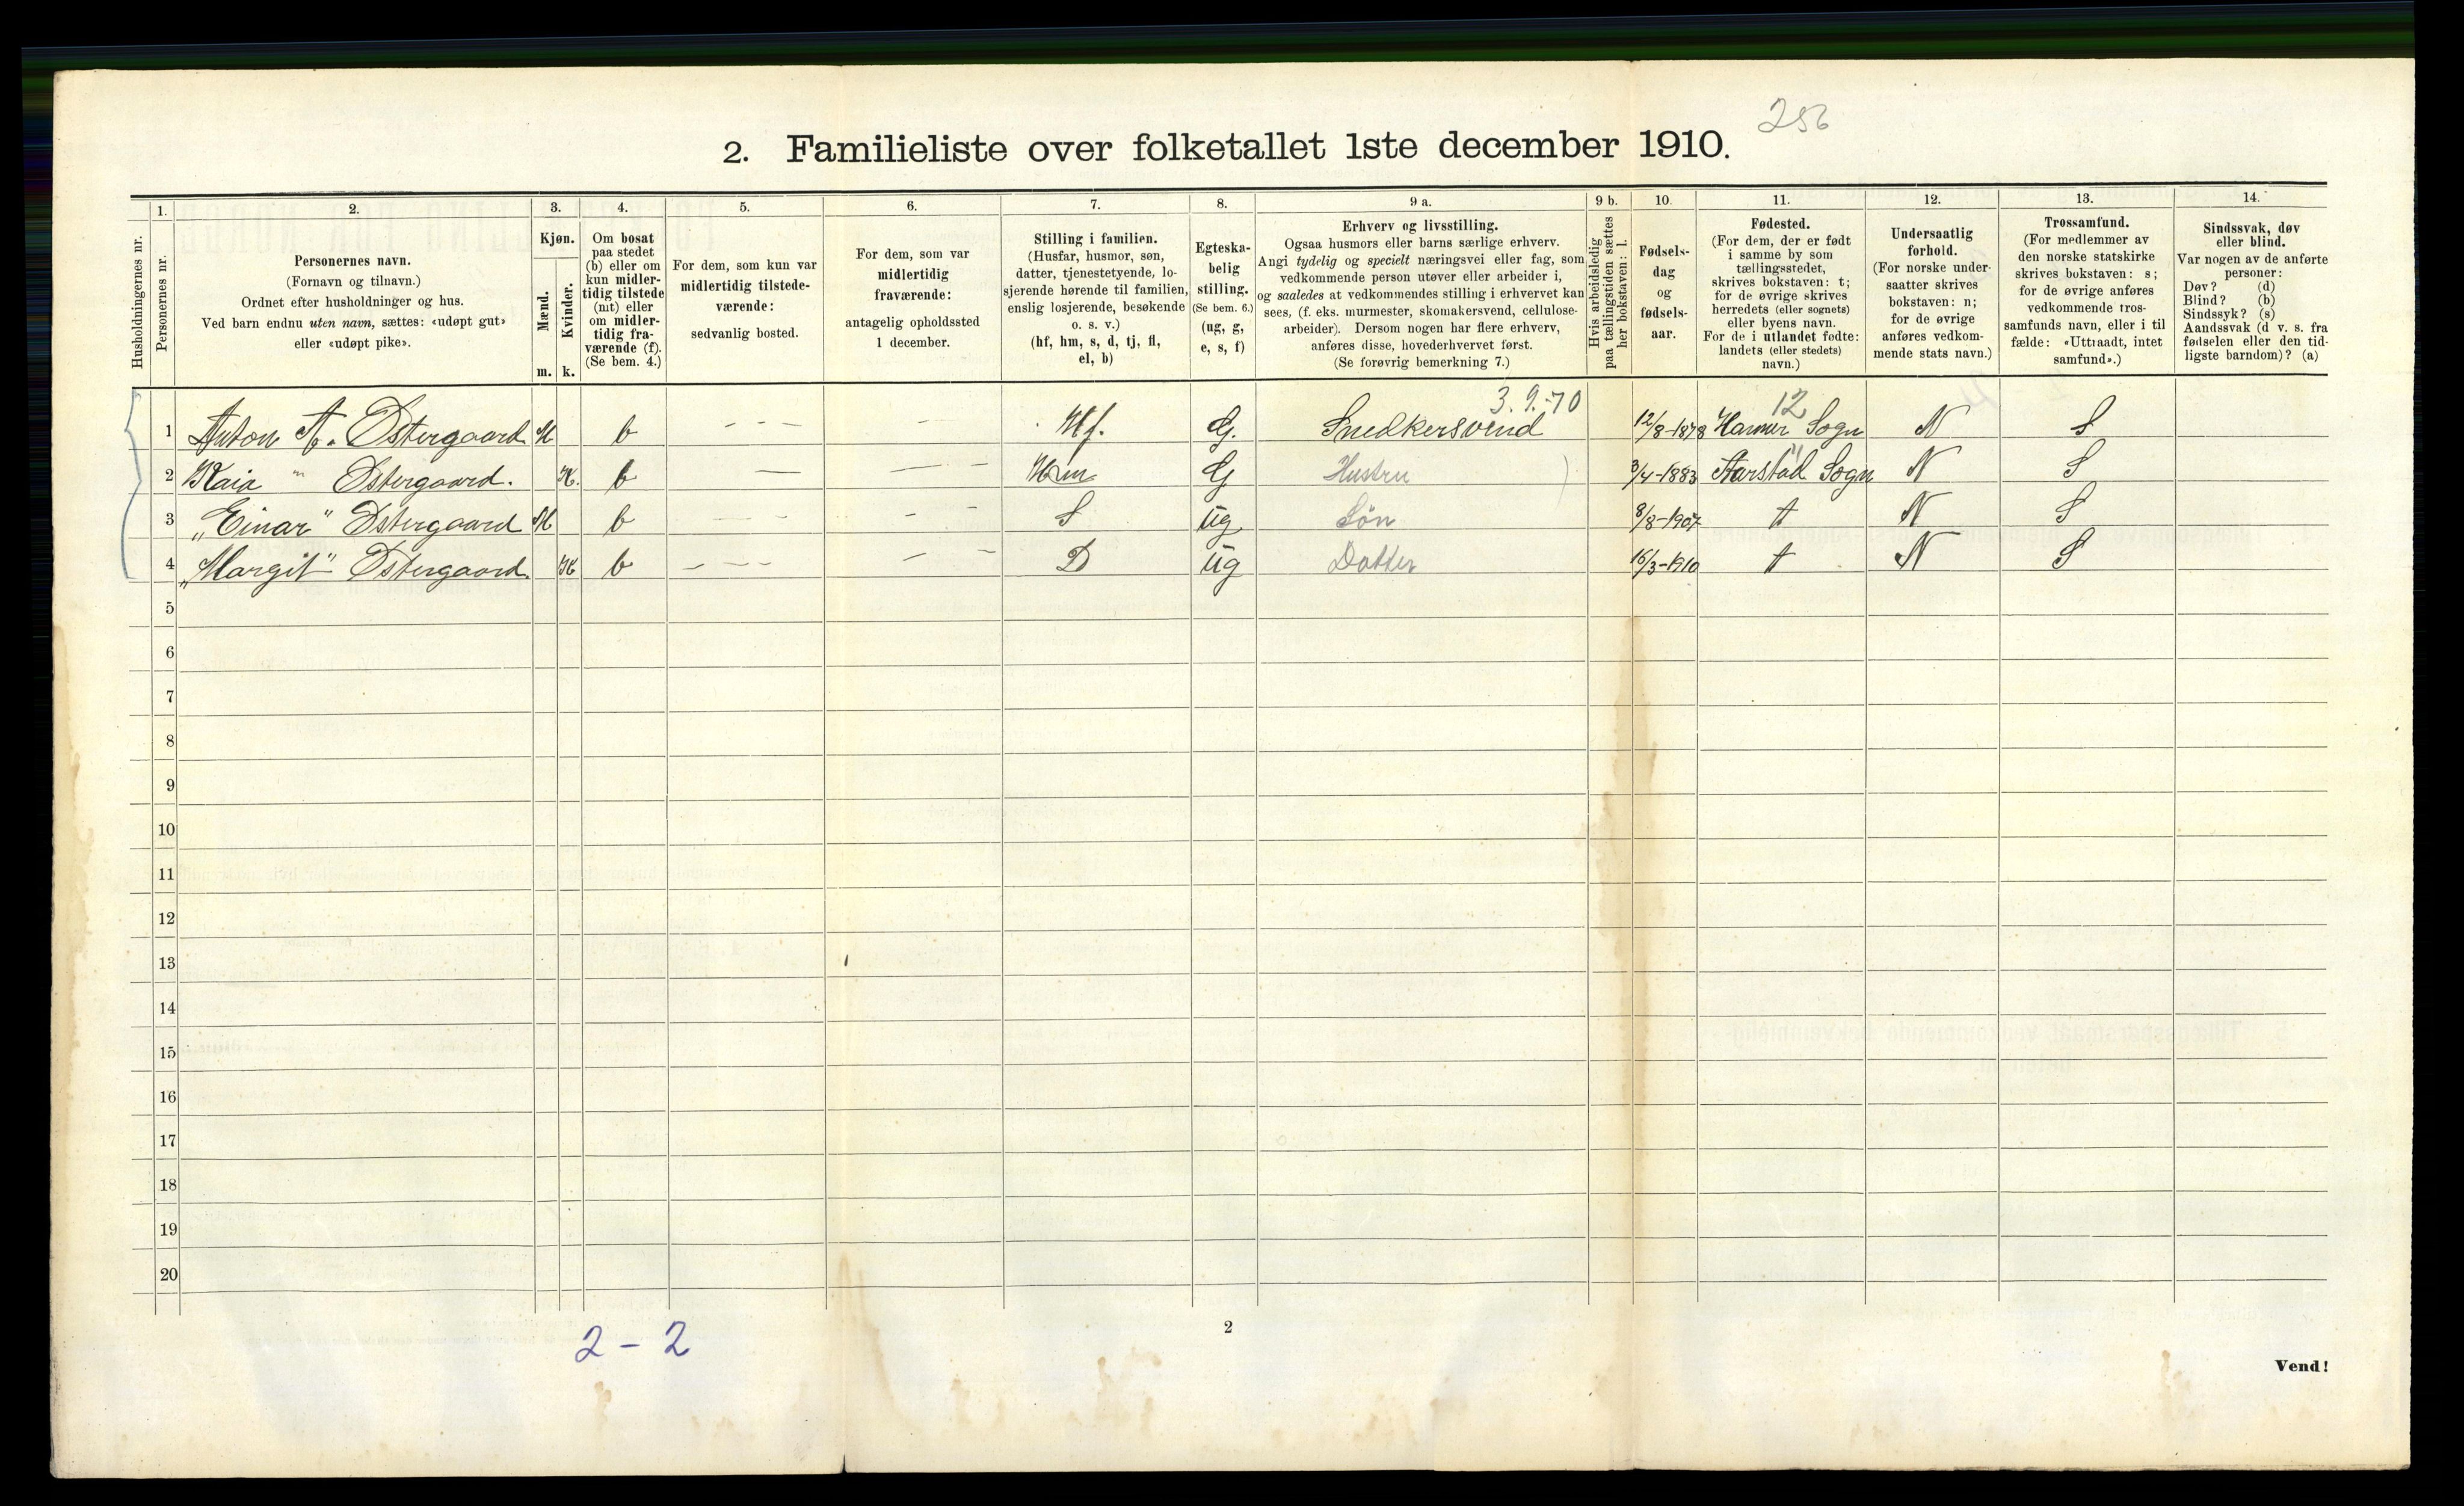 256
2. Familieliste over folketallet 1ste december 1910.
Husholdningernes nr.
1.
Personernes nr.
2.
Personernes navn.
(Fornavn og tilnavn.)
Ordnet efter husholdninger og hus.
Ved barn endnu uten navn, sættes: «udøpt gut»
eller «udøpt pike».
3.
Kjøn.
Mænd.
Kvinder.
m. k.
4.
Om bosat
paa stedet
(b) eller om
kun midler-
tidig tilstede
(mt) eller
om midler-
tidig fra-
værende (f).
(Se bem. 4.)
5.
For dem, som kun var
midlertidig tilstede-
værende:
sedvanlig bosted.
6.
For dem, som var
midlertidig
fraværende:
antagelig opholdssted
1 december.
7.
Stilling i familien.
(Husfar, husmor, søn,
datter, tjenestetyende, lo-
sjerende hørende til familien,
enslig losjerende, besøkende
o. s. v.)
(hf, hm, s, d, tj, fl,
el, b)
8.
Egteska-
belig
stilling.
(Se bem. 6.)
(ug, g,
e, s, f)
9 a.
Erhverv og livsstilling.
Ogsaa husmors eller barns særlige erhverv.
Angi tydelig og specielt næringsvei eller fag, som
vedkommende person utøver eller arbeider i,
og saaledes at vedkommendes stilling i erhvervet kan
sees, (f. eks. murmester, skomakersvend, cellulose-
arbeider). Dersom nogen har flere erhverv,
anføres disse, hovederhvervet først.
(Se forøvrig bemerkning 7.)
9 b.
Hvis arbeidsledig
paa tællingstiden sættes
her bokstaven: l.
10.
Fødsels-
dag
og
fødsels-
aar.
11.
Fødested.
(For dem, der er født
i samme by som
tællingsstedet,
skrives bokstaven: t;
for de øvrige skrives
herredets (eller sognets)
eller byens navn.
For de i utlandet fødte:
landets (eller stedets)
navn.)
12.
Undersaatlig
forhold.
(For norske under-
saatter skrives
bokstaven: n;
for de øvrige
anføres vedkom-
mende stats navn.)
13.
Trossamfund.
(For medlemmer av
den norske statskirke
skrives bokstaven: s;
for de øvrige anføres
vedkommende tros-
samfunds navn, eller i til
fælde: «Uttraadt, intet
samfund».)
14.
Sindssvak, døv
eller blind.
Var nogen av de anførte
personer:
Døv? (d)
Blind? (b)
Sindssyk? (s)
Aandssvak (d. v. s. fra
fødselen eller den tid-
ligste barndom)? (a)
3.9.-70 12
1 Anton A. Østergaard M b - - - - - Hf. G. Snedkersvend 12/8-1878 Hamar Sogn N S
2 Kaia " Østergaard. K. b — — - Hm G Hustru 3/4-1883 Aarstad Sogn N S
3 „Einar" Østergaard M b - - - - S Ug Søn 8/8-1907 t N S
4 „Margit" Østergaard. K b - - - - - D Ug Datter 16/3-1910 t N S
5
6
7
8
9
10
11
12
13
14
15
16
17
18
19
20
2 - 2
2
Vend!